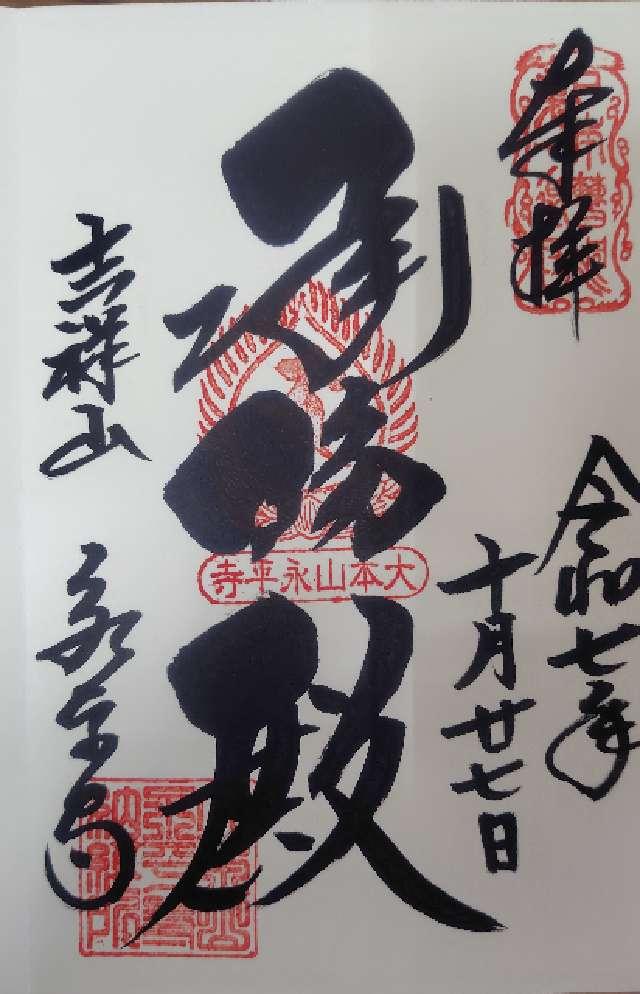 奉拝
令和七年
十月廿七日
承陽殿
大本山永平寺
吉祥山
永平寺